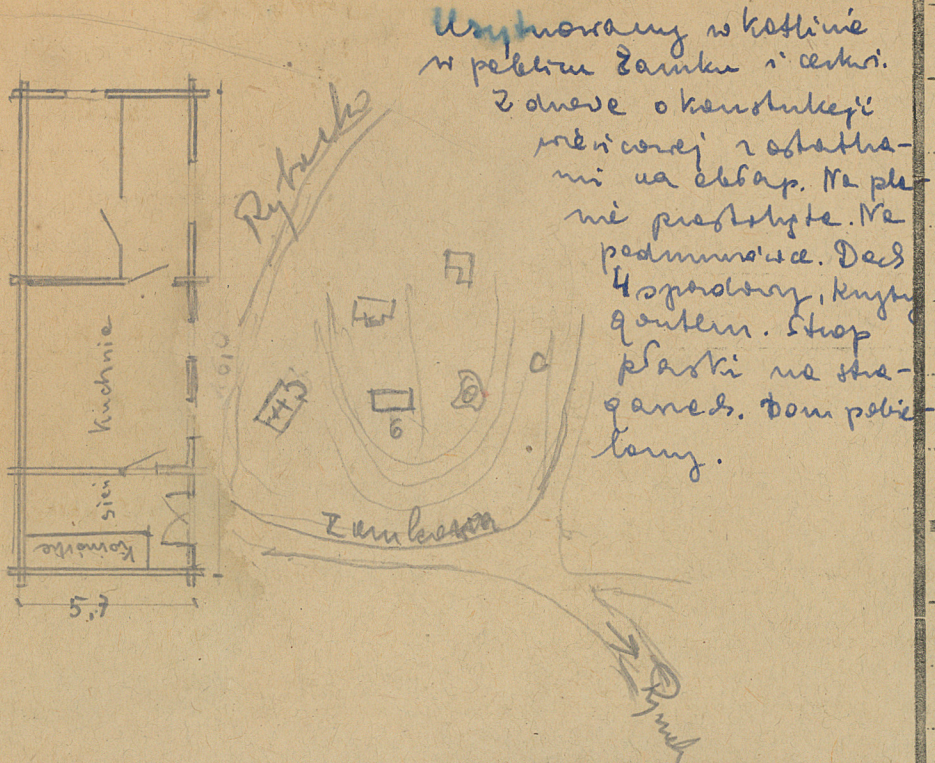 Usytuowany w kotlinie
w pobliżu Zamku i cerkwi.
Z drzewa o konstrukcji
wieńcowej z ostatka-
mi na obłap. Na pla-
nie prostokąta. Na
podmurówce. Dach
4 spadowy, kryty
gontem. Strop
płaski na stra-
garach. Dom pobie-
lany.
Rybacka
Kuchnia
sień
Komórka
5,7
6
Zamkowa
Rynek